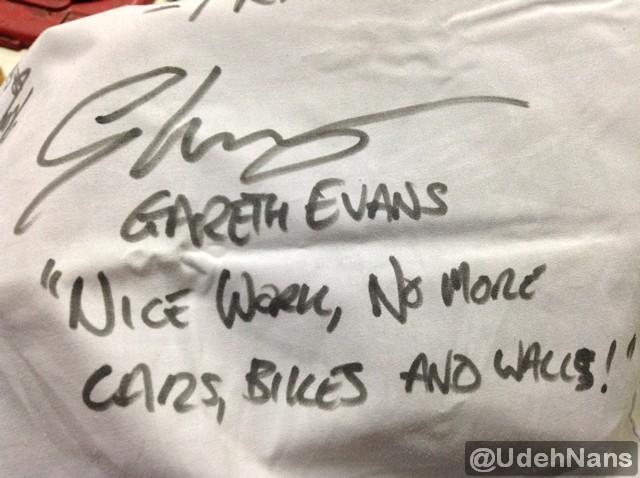 GARETH EVANS
"NICE WORK, NO MORE
CARS, BIKES AND WALLS!"
@UdehNans